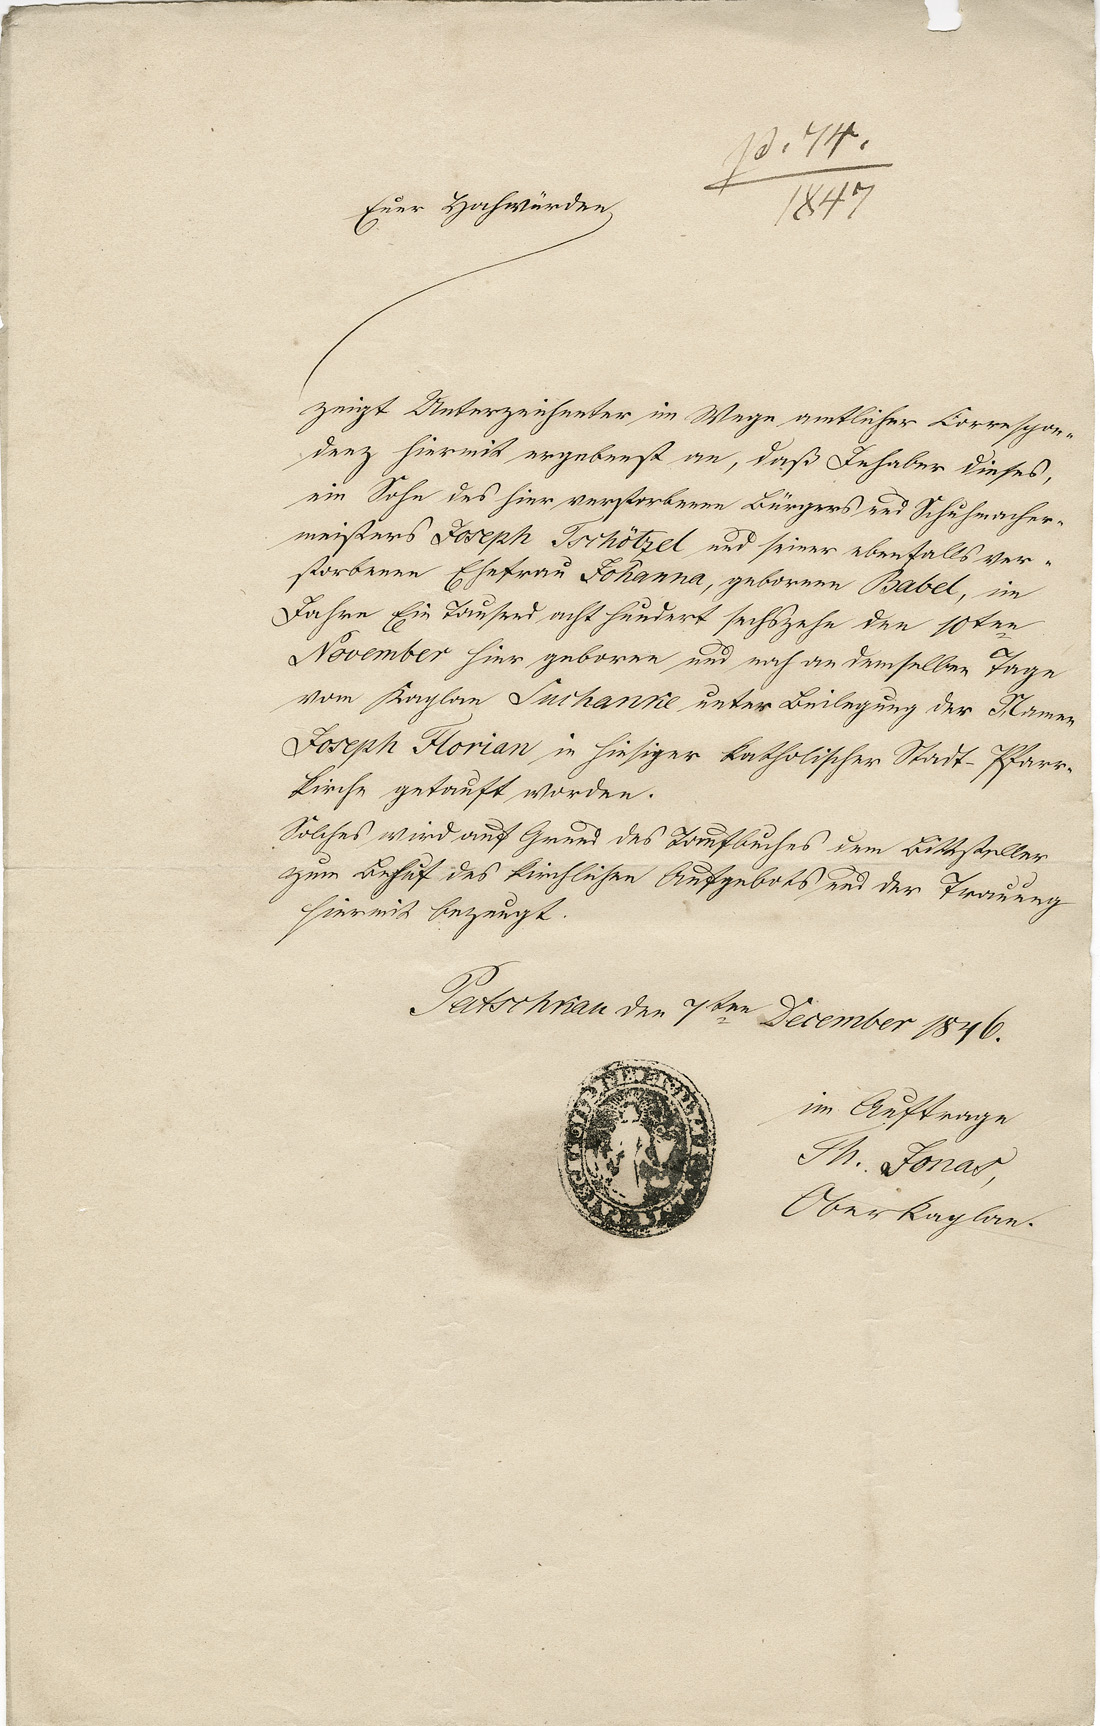 p. 74.
1847
Euer Hochwürden
zeigt Unterzeichneter im Wege amtlicher Correspon-
denz hiermit ergebenst an, daß Inhaber dieses,
ein Sohn des hier verstorbenen Bürgers und Schuhmacher-
meisters Joseph Tschötzel und seiner ebenfalls ver-
storbenen Ehefrau Johanna, geborenen Babel, im
Jahre Ein Tausend acht hundert sechszehn den 10ten
November hier geboren und noch an demselben Tage
vom Kaplan Suchanke unter Beilegung der Namen
Joseph Florian in hiesiger katholischer Stadt-Pfarr-
kirche getauft worden.
Solches wird auf Grund des Taufbuches dem Bittsteller
zum Behuf des kirchlichen Aufgebots und der Trauung
hiermit bezeugt.
Patschkau den 7ten December 1846.
im Auftrage
Th. Jonas,
Oberkaplan.